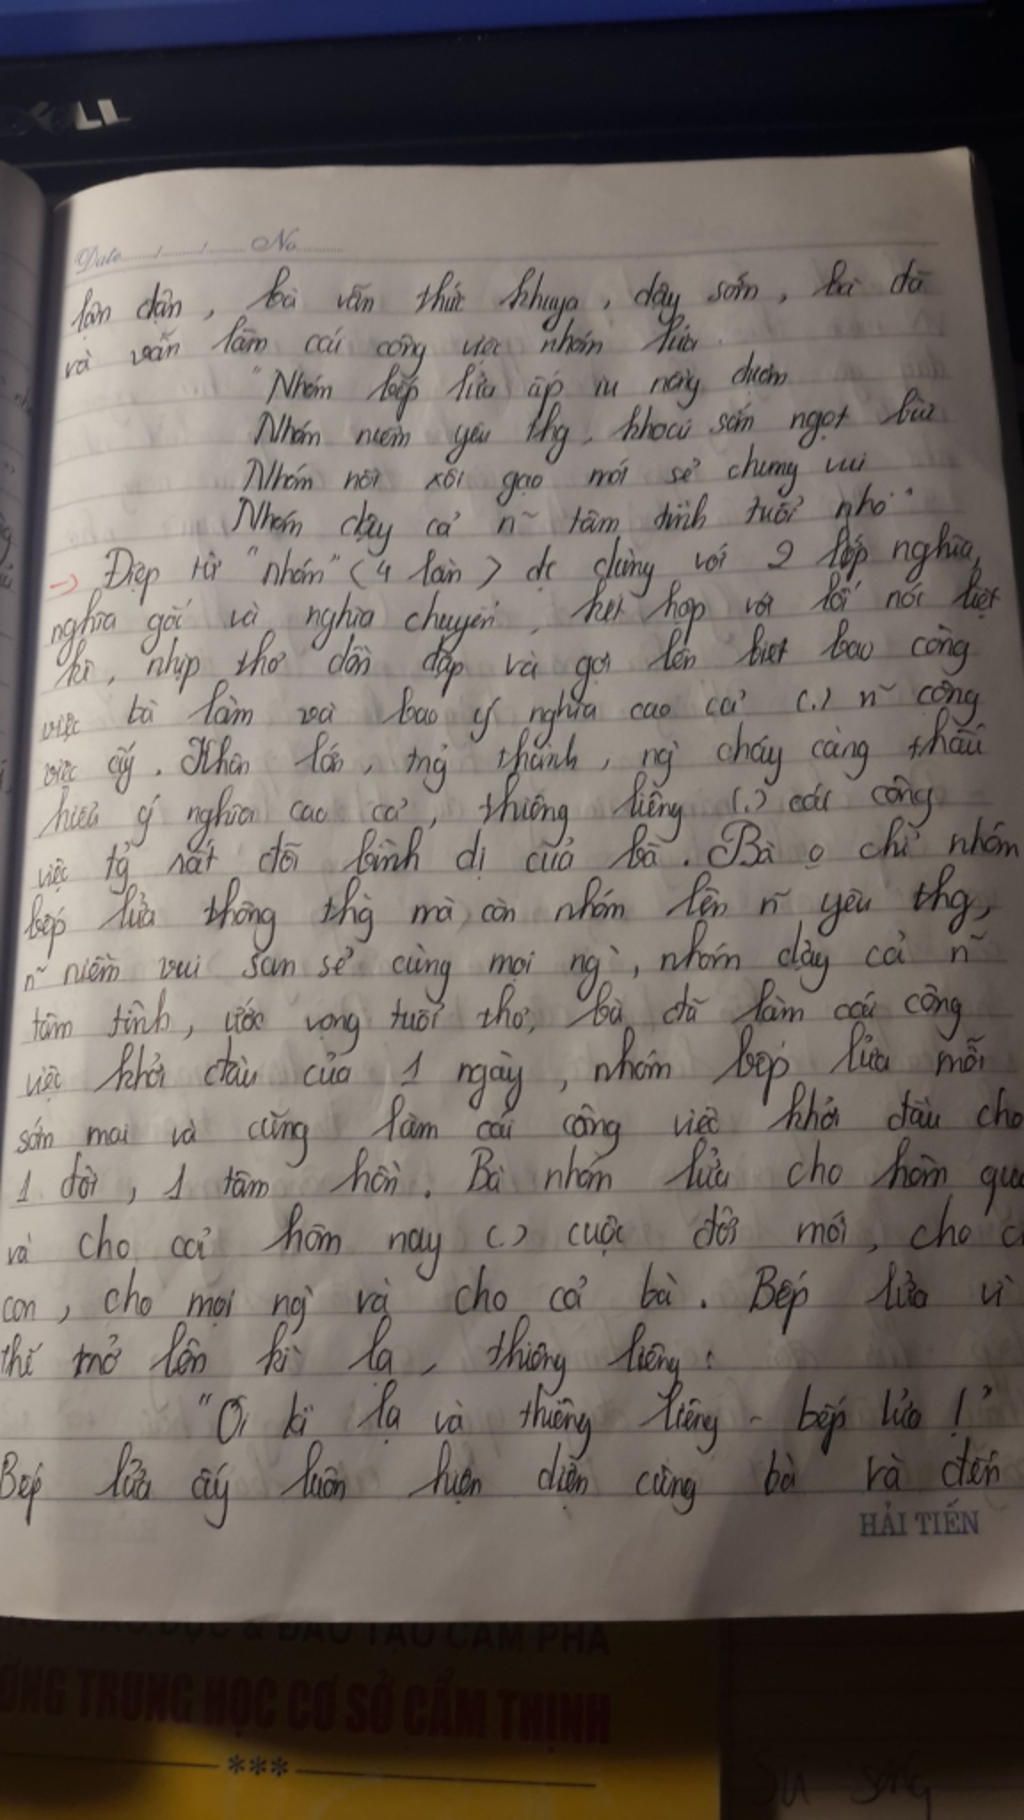 DELL
Date ...../...../..... No ..........
lận đận, bà vẫn thức khuya, dậy sớm, bà đã
và vẫn làm cái công việc nhóm lửa.
"Nhóm bếp lửa ấp iu nồng đượm
Nhóm niềm yêu thg, khoai sắn ngọt bùi
Nhóm nồi xôi gạo mới sẻ chung vui
Nhóm dậy cả n~ tâm tình tuổi nhỏ"
-> Điệp từ "nhóm" (4 lần) dc dùng với 2 lớp nghĩa,
nghĩa gốc và nghĩa chuyển, kết hợp với lối nói liệt
kê, nhịp thơ dồn dập và gợi lên biết bao công
việc bà làm và bao ý nghĩa cao cả (.) n~ công
việc ấy. Khôn lớn, trg thành, ng cháu càng thấu
hiểu ý nghĩa cao cả, thiêng liêng (.) các công
việc rất đỗi bình dị của bà. Bà o chỉ nhóm
bếp lửa thông thg mà còn nhóm lên n~ yêu thg,
n~ niềm vui san sẻ cùng mọi ng, nhóm dậy cả n~
tâm tình, ước vọng tuổi thơ, bà đã làm cái công
việc khởi đầu của 1 ngày, nhóm bếp lửa mỗi
sớm mai và cũng làm cái công việc khởi đầu cho
1 đời, 1 tâm hồn. Bà nhóm lửa cho hôm qua
và cho cả hôm nay (.) cuộc đời mới, cho c
con, cho mọi ng và cho cả bà. Bếp lửa vì
thế trở lên kì lạ, thiêng liêng:
"Ôi kì lạ và thiêng liêng - bếp lửa!"
Bếp lửa ấy luôn hiện diện cùng bà và đến
HẢI TIẾN
GIÁO DỤC & ĐÀO TẠO CẨM PHẢ
ỜNG TRUNG HỌC CƠ SỞ CẨM THỊNH
***